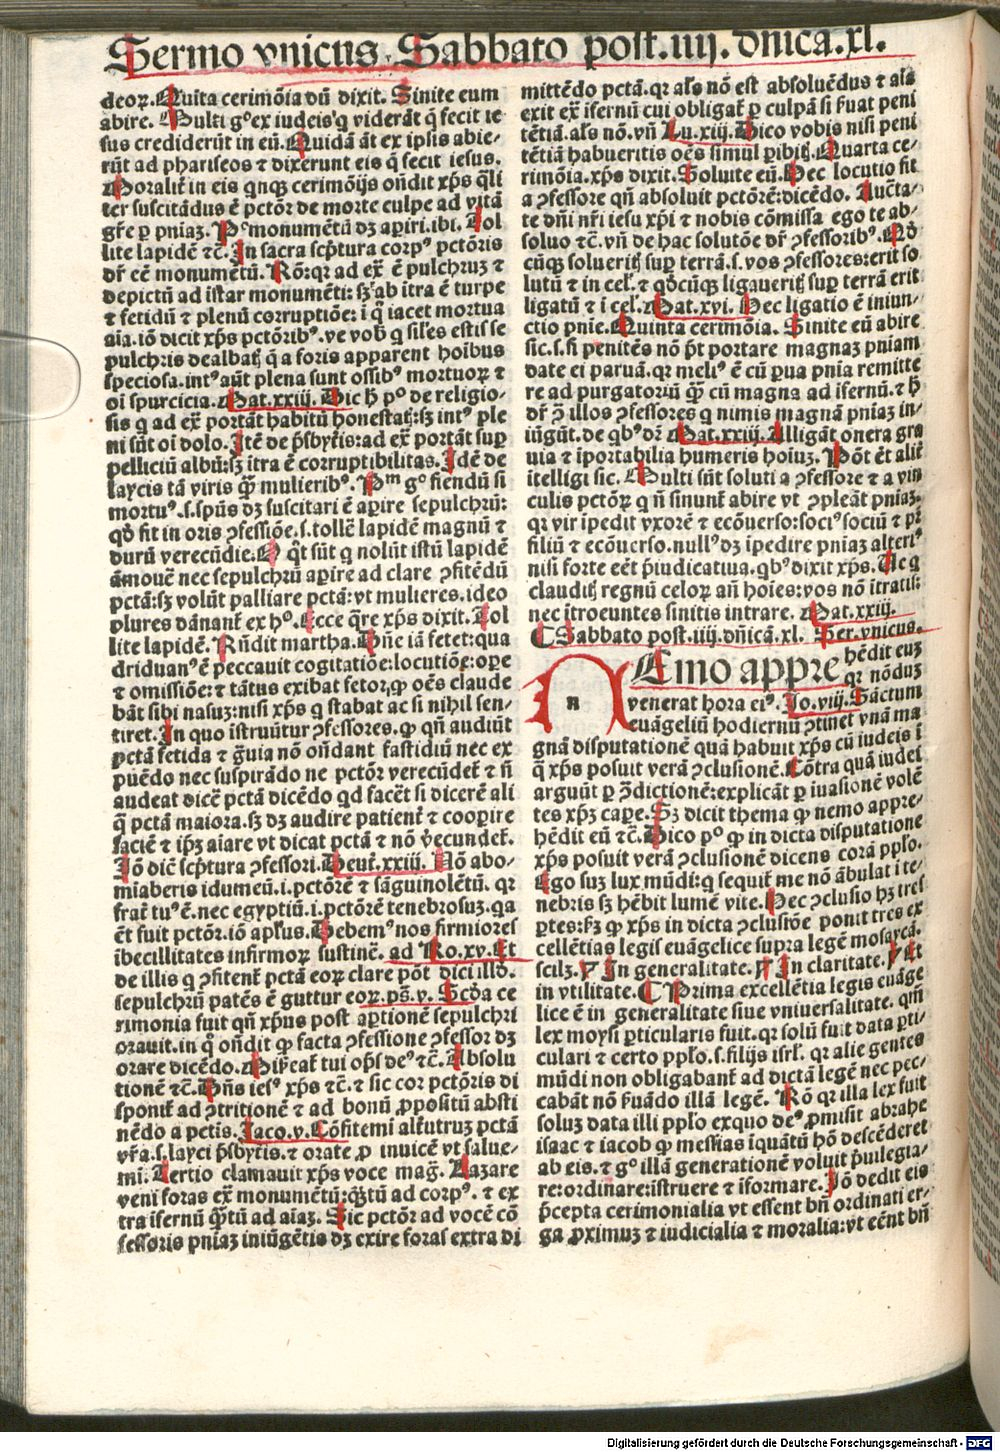 Sermo vnicus. Sabbato post.iiij.dñica.xl.
deoꝝ. Quīta cerimōia dū dixit. Sinite eum
abire. Multi gͦ ex iudeis q̄ viderāt q̄ fecit ie
sus crediderūt in eū. Quidā āt ex ipsis abie-
rūt ad phariseos ⁊ dixerunt eis q̄ fecit iesus.
Moralit̄ in eis qnqꝫ cerimōijs oñdit xp̄s q̄li
ter suscitādus ē pctōr de morte culpe ad vitā
gr̄e ꝑ pniaꝫ. Pͦ monumētū dꝫ apiri. ibi. Tol
lite lapidē ⁊c̄. In sacra scp̄tura corpꝰ pctōris
dr̄ eē monumētū. Rō: qꝛ ad ex̄ ē pulchruꝫ ⁊
depictū ad istar monumēti: sꝫ ab itra ē turpe
⁊ fetidū ⁊ plenū corruptiōe: i q̄ iacet mortua
aīa. iō dicit xp̄s pctōribꝰ. ve vob̄ q̄ sil̄es estis se
pulchris dealbatꝭ q̄ a foris apparent hoībus
speciosa. intꝰ aūt plena sunt ossibꝰ mortuoꝝ ⁊
oī spurcicia. Mat.xxiij. Hic h̄ pͦ de religio-
sis q̄ ad ex̄ portāt habitū honestatꝭ: sꝫ intꝰ ple
ni sūt oī dolo. Itē de p̄sbyt̄is: ad ex̄ portāt suꝑ
pelliciū albū: sꝫ itra ē corruptibilitas. Idē de
laycis tā viris q̄ꝫ mulieribꝰ. Pᵐ gͦ fiendū si
mortuꝰ .s. sp̄ūs dꝫ suscitari ē aperire sepulchrū:
qd̄ fit in oris ꝯfessiōe. s. tollē lapidē magnū ⁊
durū verecūdie. O q̄t sūt q̄ nolūt istū lapidē
āmouē nec sepulchrū apire ad clare ꝯfitēdū
pctā: sꝫ volūt palliare pctā: vt mulieres. ideo
plures dānant̄ ex hͦ. Ecce q̄re xp̄s dixit. Tol
lite lapidē. Rñdit martha. Dñe iā fetet: qua
driduanꝰ ē peccauit cogitatiōe: locutiōe: ope
⁊ omissiōe: ⁊ tātus exibat fetor, ꝙ oēs claude
bāt sibi nasuꝫ: nisi xp̄s q̄ stabat ac si nihil sen-
tiret. In quo istruūtur ꝯfessores. ꝙ qñ audiūt
pctā fetida ⁊ g̃uia nō oñdant fastidiū nec ex
puēdo nec suspirādo ne pctōr verecūdet̄ ⁊ sī
audeat dicē pctā dicēdo qd facēt si dicerē ali
q̄ pctā maiora. sꝫ dꝫ audire patient̄ ⁊ cooꝑire
faciē ⁊ ip̄ꝫ aīare vt dicat pctā ⁊ nō ṽecundet̄.
Iō dic̄ scp̄tura ꝯfessori. Deut̄.xxiij. Nō abo-
miaberis idumeū. i. pctōrē ⁊ sāguinolētū. qꝛ
frat̄ tuꝰ ē. nec egyptiū. i. pctōrē tenebrosuꝫ. qa
ēt fuit pctōr. iō apl̄us. Debemꝰ nos firmiores
ībecillitates infirmoꝝ sustinē. ad Ro.xv. Et
de illis q̄ ꝯfitent̄ pctā eoꝝ clare pōt dici illd̄.
sepulchrū patēs ē guttur eoꝝ. ps̄.v. Scd̄a ce
rimonia fuit qñ xp̄us post aꝑtionē sepulchri
orauit. in q̄ oñdit ꝙ facta ꝯfessione ꝯfessor dꝫ
orare dicēdo. Miseat̄ tui op̄s deꝰ ⁊c̄. Absolu
tionē ⁊c̄. Dñs iesꝰ xp̄s ⁊c̄. ⁊ sic cor pctōris di
sponit̄ ad ꝯtritionē ⁊ ad bonū ꝓpositū absti
nēdo a pctis. Iaco.v. Cōfitemi alt̄utruꝫ pctā
vr̄a. s. layci p̄sbyt̄is. ⁊ orate ꝓ inuicē vt salue-
mi. Tertio clamauit xp̄s voce mag̃. Lazare
veni foras ex̄ monumētū: q̄ꝫtū ad corpꝰ. ⁊ ex
tra ifernū q̄ꝫtū ad aīaꝫ. Sic pctōr ad vocē cō
fessoris pniaꝫ iniūgētis dꝫ exire foras extra di
mittēdo pctā. qꝛ al̄s nō est absoluēdus ⁊ al̄s
exit ex̄ ifernū cui obligat̄ ꝑ culpā si fuat peni
tētiā. al̄s nō. vñ Lu.xiij. Dico vobis nisi peni
tētiā habueritis oēs simul ꝑibitꝭ. Quarta ce-
rimōia. xp̄s dixit. Soluite eū. Hec locutio fit
a ꝯfessore qñ absoluit pctōrē: dicēdo. Auctā-
te dñi nr̄i iesu xp̄i ⁊ nobis cōmissa ego te ab-
soluo ⁊c̄. vñ de hac solutōe dr̄ ꝯfessoribꝰ. Qd̄
cūqꝫ solueritꝭ suꝑ terrā. s. vos ꝯfessores: erit so
lutū ⁊ in cel̄. ⁊ qd̄cūqꝫ ligaueritꝭ suꝑ terrā erit
ligatū ⁊ i cel̄. Mat.xvi. Hec ligatio ē iniun-
ctio pnie. Quinta cerimōia. Sinite eū abire
sic. s. si penitēs nō p̄t portare magnaꝫ pniam
date ei paruā. qꝛ meliꝰ ē cū pua pnia remitte
re ad purgatoriū q̄ꝫ cū magna ad ifernū. ⁊ h̄
dr̄ ꝯ̄ illos ꝯfessores q̄ nimis magnā pniaꝫ in-
iūgūt. de qbꝰ dr̄. Mat.xxiij. Alligāt onera gra
uia ⁊ īportabilia humeris hoiuꝫ. Pōt ēt alit̄
itelligi sic. Multi sūt soluti a ꝯfessore ⁊ a vin
culis pctōꝝ q̄ ñ sinunt̄ abire vt ꝯpleāt pniaꝫ.
qꝛ vir īpedit vxorē ⁊ ecōuerso: sociꝰ sociū ⁊ pr̄
filiū ⁊ ecōuerso. nullꝰ dꝫ īpedire pniaꝫ alteriꝰ
nisi forte eēt p̄iudicatiua. qbꝰ dixit xp̄s. Ue q̄
clauditꝭ regnū celoꝝ añ hoīes: vos nō itratis:
nec itroeuntes sinitis intrare. Mat.xxiij.
Sabbato post.iiij.dñicā.xl. Ser.vnicus.
NEmo appre
hēdit euꝫ
qꝛ nōduꝫ
venerat hora eiꝰ. Io.viij. Sāctum
euāgeliū hodiernū ꝯtinet vnā ma
gnā disputationē quā habuit xp̄s cū iudeis ī
q̄ xp̄s posuit verā ꝯclusionē. Cōtra quā iudei
arguūt ꝑ ꝯ̄dictionē: explicāt ꝑ iuasionē volē
tes xp̄ꝫ cape. Sꝫ dicit thema ꝙ nemo appre-
hēdit eū ⁊c̄. Dico pͦ ꝙ in dicta disputatione
xp̄s posuit verā ꝯclusionē dicens corā pplo.
Ego suꝫ lux mūdi: q̄ sequit̄ me nō ābulat i te-
nebris sꝫ hēbit lumē vite. Hec ꝯclusio hꝫ tres
ꝑtes: sꝫ ꝙ xp̄s in dicta ꝯclusiōe ponit tres ex
cellētias legis euāgelice supra legē mosaycā.
scilꝫ. In generalitate. In claritate. Et
in vtilitate. Prima excellētia legis euāge
lice ē in generalitate siue vniuersalitate. qm̄
lex moysi ꝑticularis fuit. qꝛ solū fuit data ꝑti-
culari ⁊ certo pplo. s. filijs isrl̄. qꝛ alie gentes
mūdi non obligabant̄ ad dictā legē nec pec-
cabāt nō fuādo illā legē. Rō qꝛ illa lex fuit
soluꝫ data illi pplo exquo deꝰ ꝓmisit abrahe
isaac ⁊ iacob ꝙ messias īquātū hō descēderet
ab eis. ⁊ gͦ illā generationē voluit p̄uilegia-
re: ordinare: istruere ⁊ iformare. Iō dedit eis
p̄cepta cerimonialia vt essent bñ ordinati er-
ga ꝓximuꝫ ⁊ iudicialia ⁊ moralia: vt eēnt bñ
Digitalisierung gefördert durch die Deutsche Forschungsgemeinschaft - DFG